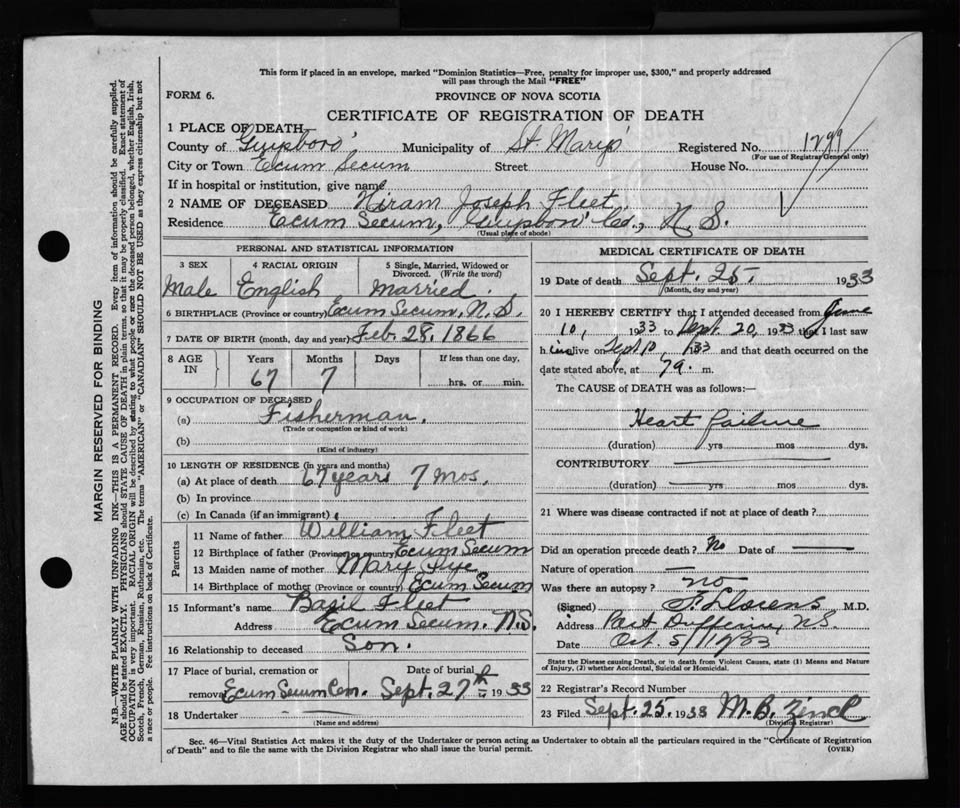 This form if placed in an envelope, marked "Dominion Statistics—Free, penalty for improper use, $300," and properly addressed
will pass through the Mail "FREE"
FORM 6.
PROVINCE OF NOVA SCOTIA
CERTIFICATE OF REGISTRATION OF DEATH
1 PLACE OF DEATH
County of Guysboro' Municipality of St. Marys' Registered No. 1299
(For use of Registrar General only)
City or Town Ecum Secum Street House No.
If in hospital or institution, give name
2 NAME OF DECEASED Hiram Joseph Fleet
Residence Ecum Secum, Guysboro' Co., N. S.
(Usual place of abode)
PERSONAL AND STATISTICAL INFORMATION
3 SEX 4 RACIAL ORIGIN 5 Single, Married, Widowed or Divorced. (Write the word)
Male English Married.
6 BIRTHPLACE (Province or country) Ecum Secum, N. S.
7 DATE OF BIRTH (month, day and year) Feb. 28, 1866
8 AGE IN Years Months Days If less than one day,
67 7 hrs. or min.
9 OCCUPATION OF DECEASED
(a) Fisherman.
(Trade or occupation or kind of work)
(b)
(Kind of industry)
10 LENGTH OF RESIDENCE (in years and months)
(a) At place of death 67 years 7 mos.
(b) In province
(c) In Canada (if an immigrant)
Parents
11 Name of father William Fleet
12 Birthplace of father (Province or country) Ecum Secum
13 Maiden name of mother Mary Pye
14 Birthplace of mother (Province or country) Ecum Secum
15 Informant's name Basil Fleet
Address Ecum Secum. N.S.
16 Relationship to deceased Son.
17 Place of burial, cremation or Date of burial
removal Ecum Secum Cem. Sept. 27th 1933
18 Undertaker
(Name and address)
MEDICAL CERTIFICATE OF DEATH
19 Date of death Sept. 25. 1933
(Month, day and year)
20 I HEREBY CERTIFY that I attended deceased from June
10, 1933 to Sept. 20, 1933 that I last saw
h im alive on Sept 10, 1933 and that death occurred on the
date stated above, at 79. m.
The CAUSE of DEATH was as follows:—
Heart failure
(duration) yrs mos dys.
CONTRIBUTORY
(duration) yrs mos dys.
21 Where was disease contracted if not at place of death?
Did an operation precede death? No Date of
Nature of operation
Was there an autopsy? no
(Signed) M.D.
Address Port Dufferin, N.S.
Date Oct. 5/1933
State the Disease causing Death, or in death from Violent Causes, state (1) Means and Nature
of Injury, (2) whether Accidental, Suicidal or Homicidal.
22 Registrar's Record Number
23 Filed Sept. 25. 1933 M. B. Zinck
(Division Registrar)
Sec. 46—Vital Statistics Act makes it the duty of the Undertaker or person acting as Undertaker to obtain all the particulars required in the "Certificate of Registration
of Death" and to file the same with the Division Registrar who shall issue the burial permit. (OVER)
MARGIN RESERVED FOR BINDING
N.B.—WRITE PLAINLY WITH UNFADING INK—THIS IS A PERMANENT RECORD. Every item of information should be carefully supplied.
AGE should be stated EXACTLY. PHYSICIANS should STATE CAUSE OF DEATH in plain terms, so that it may be properly classified. Exact statement of
OCCUPATION is very important. RACIAL ORIGIN will be described by stating to what people or race the deceased person belonged, whether English, Irish,
Scotch, French, German, Russian, Ruthenian, etc. The terms "AMERICAN" or "CANADIAN" SHOULD NOT BE USED as they express citizenship but not
a race or people. See instructions on back of Certificate.